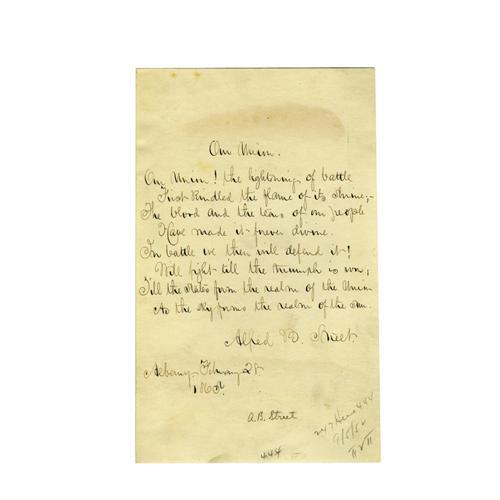 Our Union.
Our Union! the lightning of battle
First kindled the flame of its shrine;-
The blood and the tears of our people
Have made it forever divine.
In battle we then will defend it!
Will fight till the triumph is won;
Till the States form the realm of the Union
As the sky forms the realm of the sun.
Alfred B. Street.
Albany February 28
A.B. Street
444